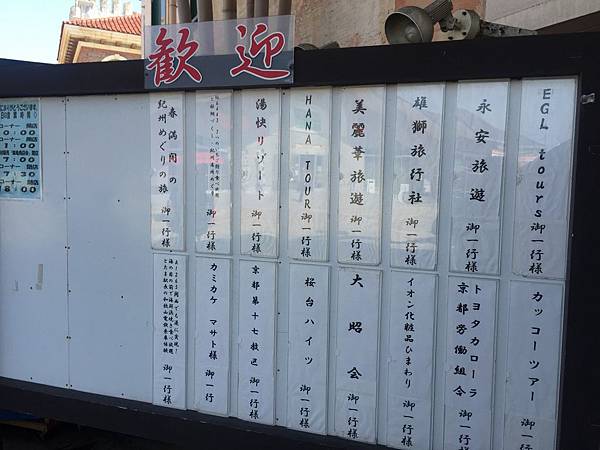 歓迎
EGL tours 御一行様
永安旅遊 御一行様
雄獅旅行社 御一行様
美麗華旅遊 御一行様
HANA TOUR 御一行様
湯快リゾート 御一行様
御一行様
春満開の
紀州めぐりの旅 御一行様
カッコーツアー 御一行様
トヨタカローラ
京都労働組合 御一行様
イオン化粧品ひまわり 御一行様
大昭会 御一行様
桜台ハイツ 御一行様
京都第十七教区 御一行様
カミカケ マサト様 御一行
御一行様